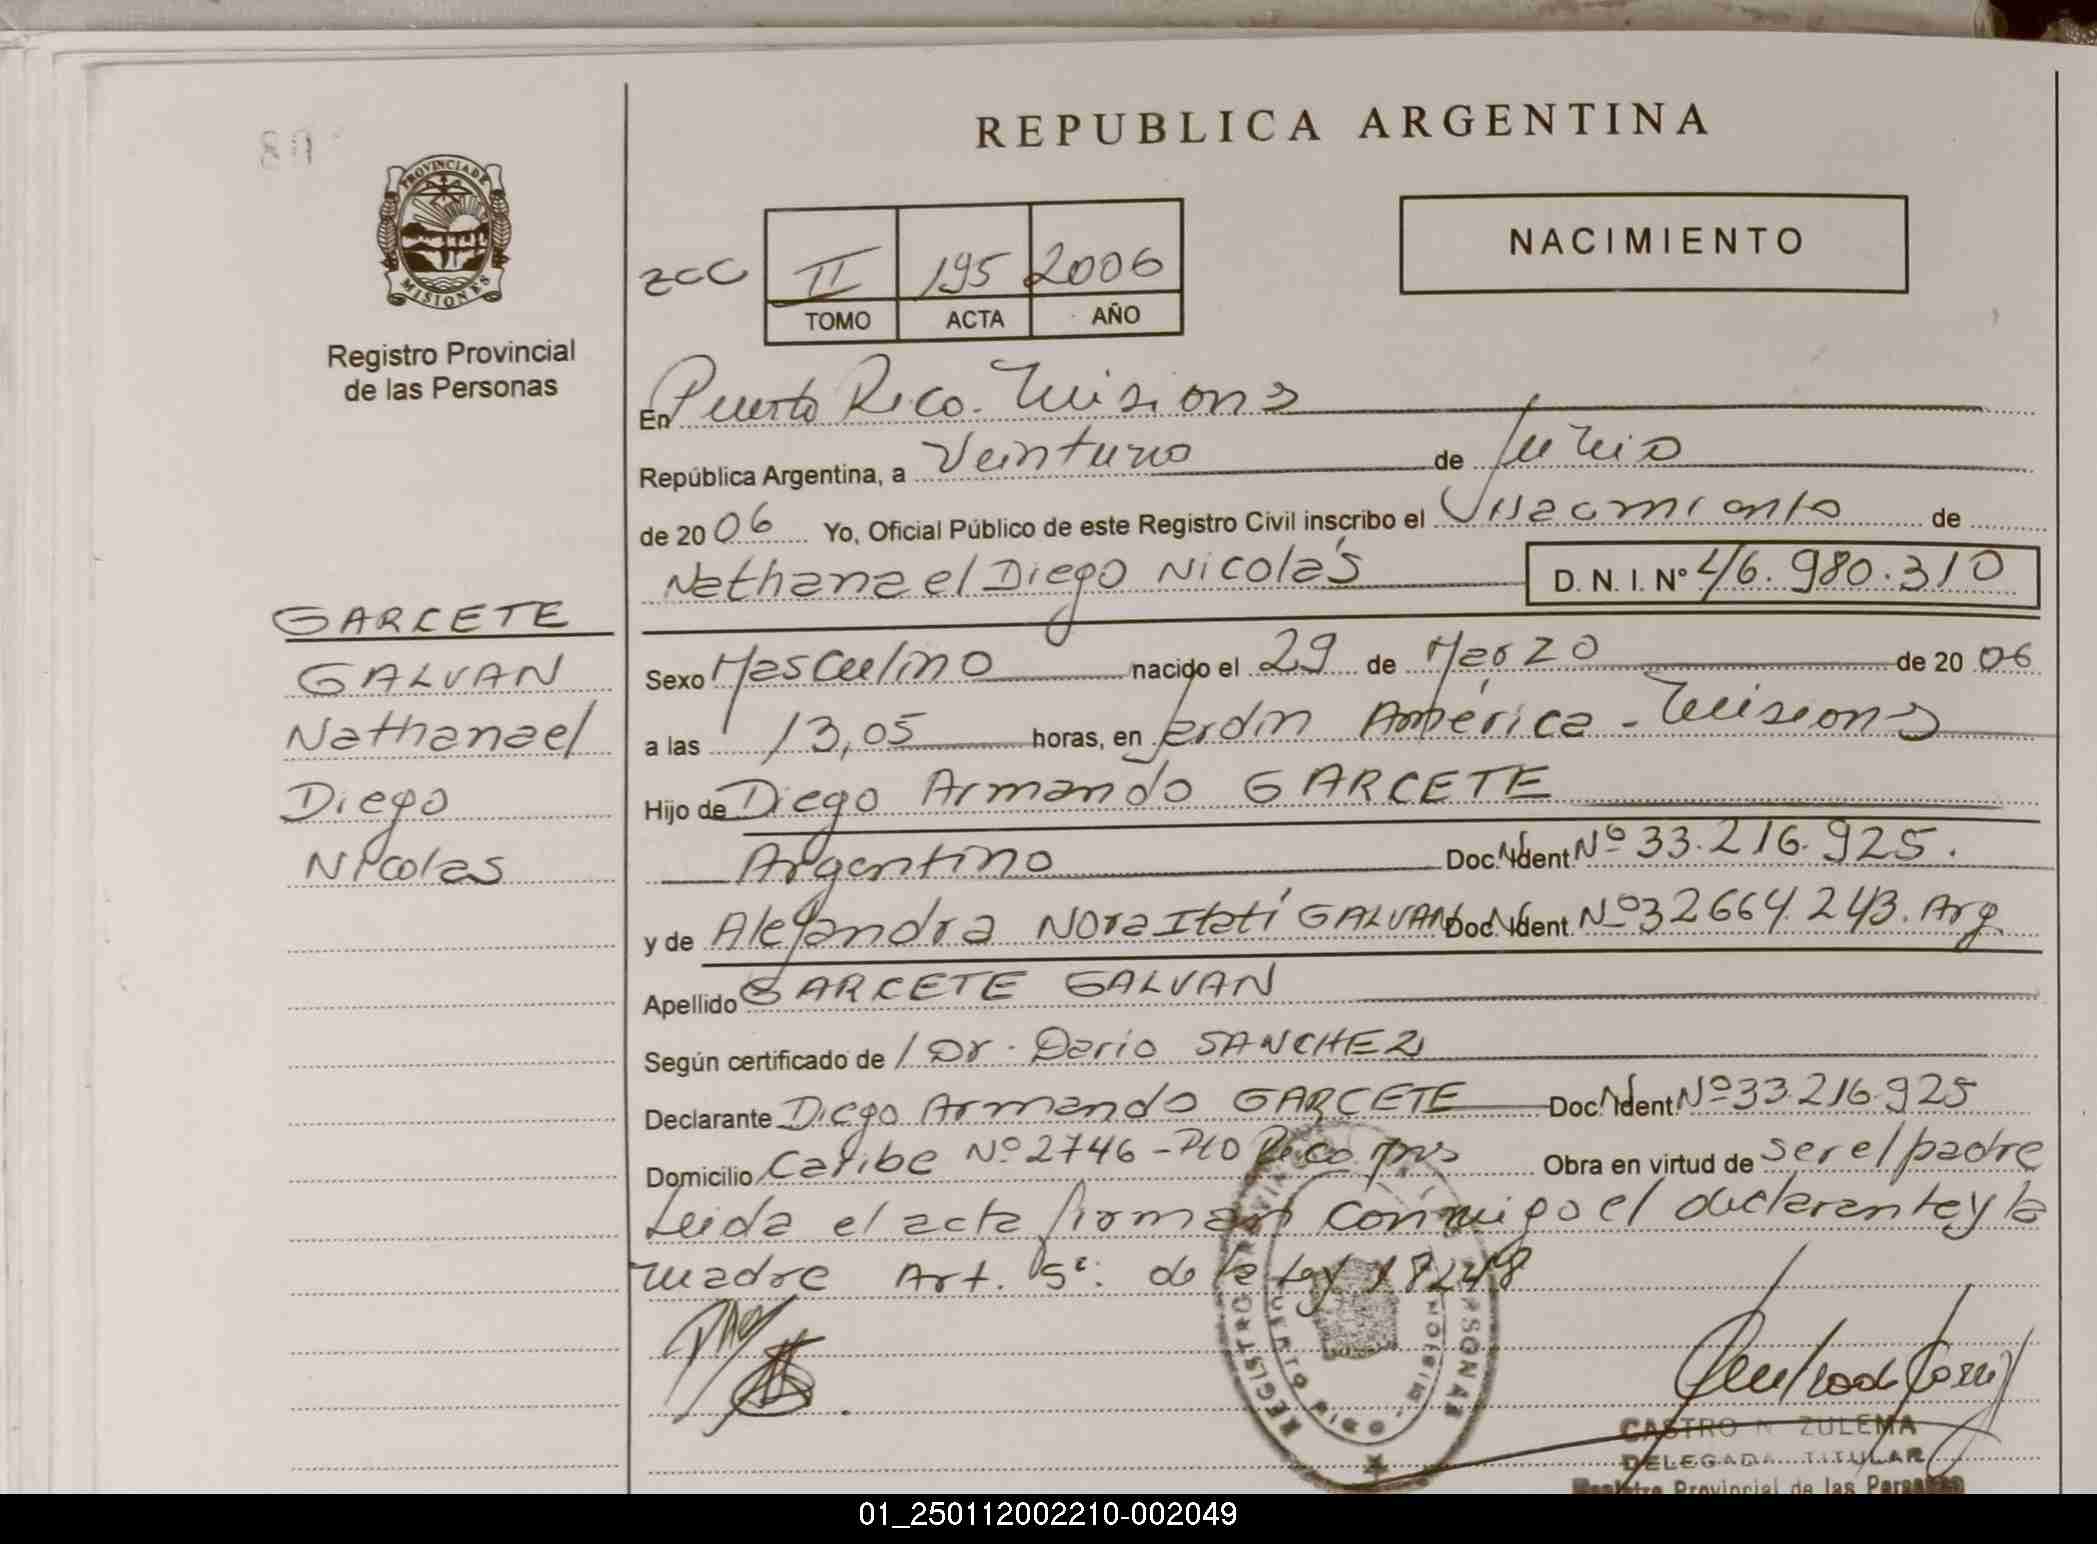 REPUBLICA ARGENTINA
PROVINCIA DE
MISIONES
Registro Provincial
de las Personas
NACIMIENTO
II 195 2006
TOMO ACTA AÑO
En Puerto Rico - Misiones
República Argentina, a Veintuno de Junio
de 2006 Yo, Oficial Público de este Registro Civil inscribo el Nacimiento de
Nathanael Diego Nicolás D. N. I. Nº 46.980.310
GARCETE
GALVAN
Nathanael
Diego
Nicolas
Sexo Masculino nacido el 29 de Marzo de 2006
a las 13,05 horas, en Jardín América - Misiones
Hijo de Diego Armando GARCETE
Argentino Doc. Ident Nº 33.216.925.
y de Alejandra Nora Itatí GALVAN Doc. Ident. Nº 32664.243. Arg
Apellido GARCETE GALVAN
Según certificado de Dr. Dario SANCHEZ
Declarante Diego Armando GARCETE Doc. Ident Nº 33.216.925
Domicilio Caribe Nº 2746 - Pto Rico Mns Obra en virtud de ser el padre
Leida el acta firman conmigo el declarante y la
madre Art. 5º: de la Ley 18248
REGISTRO PROVINCIAL PERSONAS
PUERTO RICO
CASTRO N ZULEMA
DELEGADA TITULAR
Registro Provincial de las Personas
01_250112002210-002049